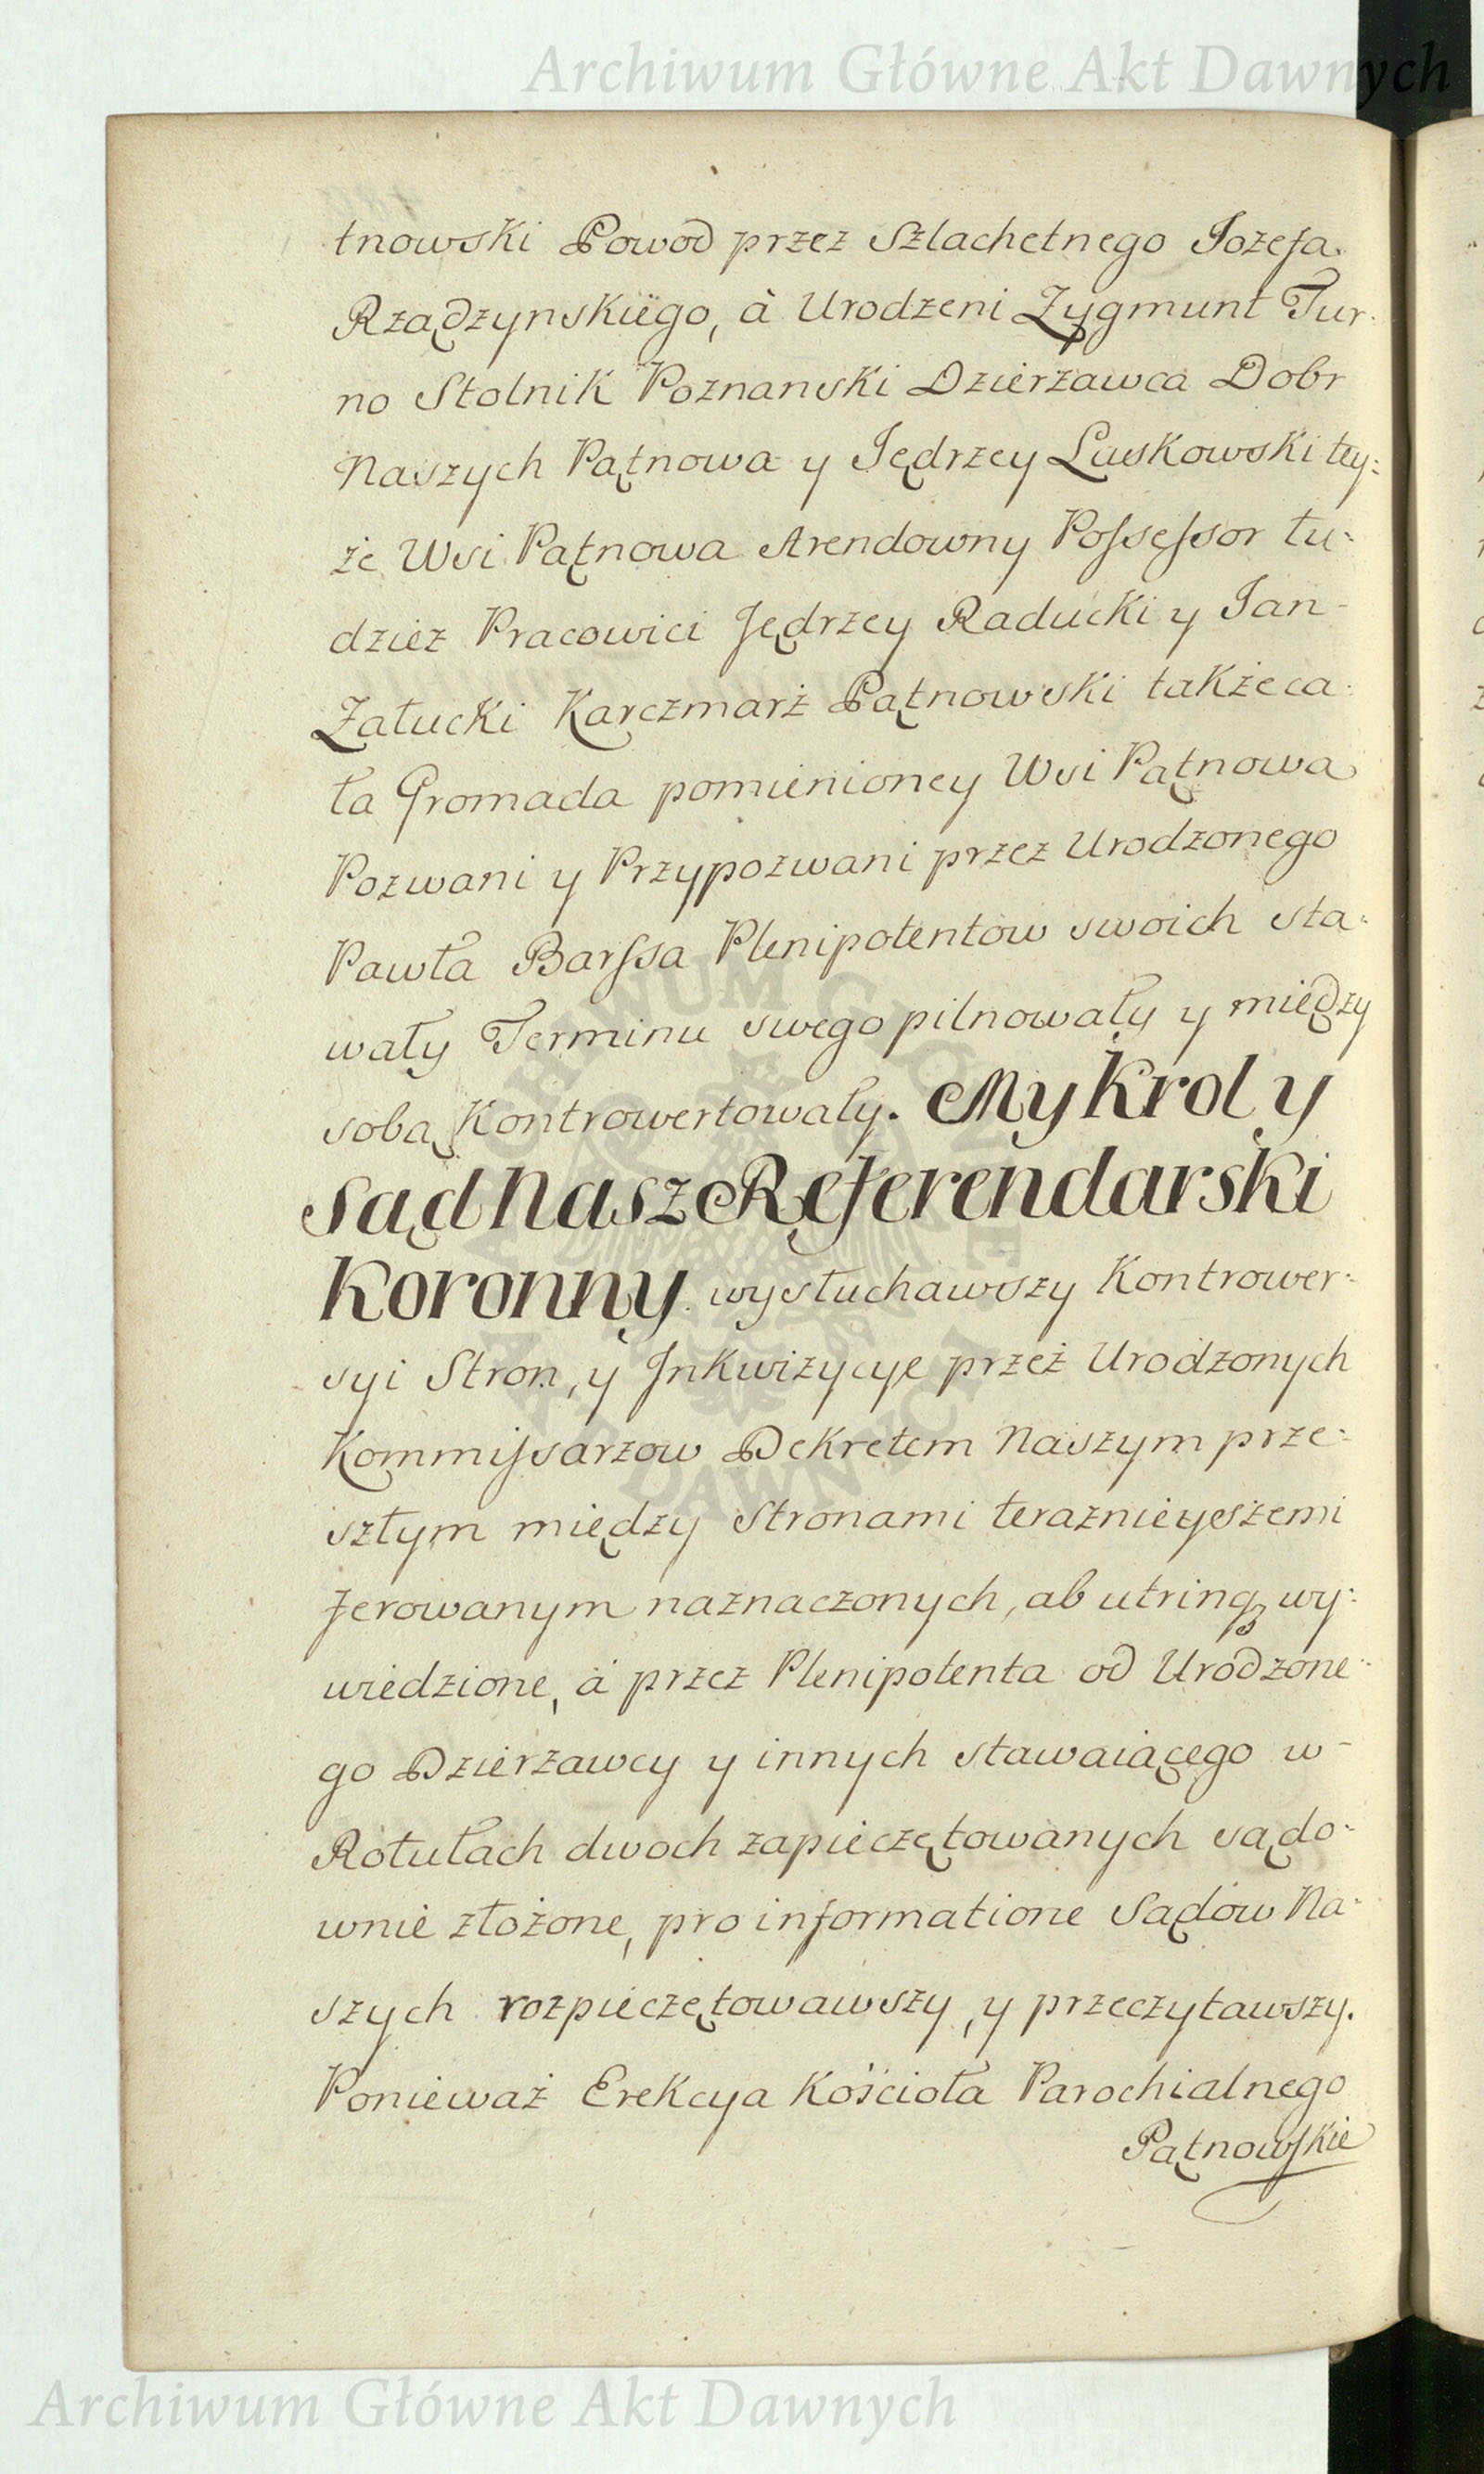 Archiwum Główne Akt Dawnych
tnowski Powod przez Szlachetnego Iozefa
Rządzynskiego, à Urodzeni Zygmunt Tur-
no Stolnik Poznanski Dzierżawca Dobr
Naszych Pątnowa y Iędrzey Laskowski tey-
że Wsi Pątnowa Arendowny Possessor tu-
dziez Pracowici Jędrzey Raducki y Ian
Załucki Karczmarż Pątnowski także ca-
ła Gromada pomienioney Wsi Pątnowa
Pozwani y Przypozwani przez Urodzonego
Pawła Barssa Plenipotentow swoich sta-
wały Terminu swego pilnowały y między
sobą Kontrowertowały. My Krol y
Sąd Nasz Referendarski
Koronny wysłuchawszy Kontrower-
syi Stron, y Jnkwizycye przeż Urodzonych
Kommissarzow Dekretem Naszym prze-
szłym między Stronami teraznieyeszemi
ferowanym naznaczonych, ab utrinq wy-
wiedzione, á przez Plenipotenta od Urodzone-
go Dzierżawcy y innych stawaiącego w
Rotułach dwoch zapieczętowanych sądo-
wnie złożone, pro informatione Sądow Na-
szych rozpieczętowawszy, y przeczytawszy.
Ponieważ Erekcya Kościoła Parochialnego
Pątnowskie
Archiwum Główne Akt Dawnych